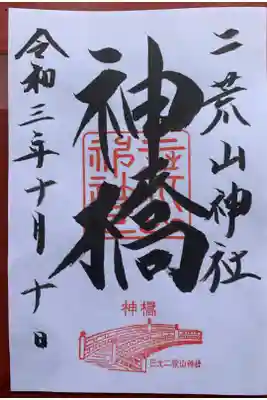 二荒山神社
神橋
令和三年十月十日
神橋
日光二荒山神社